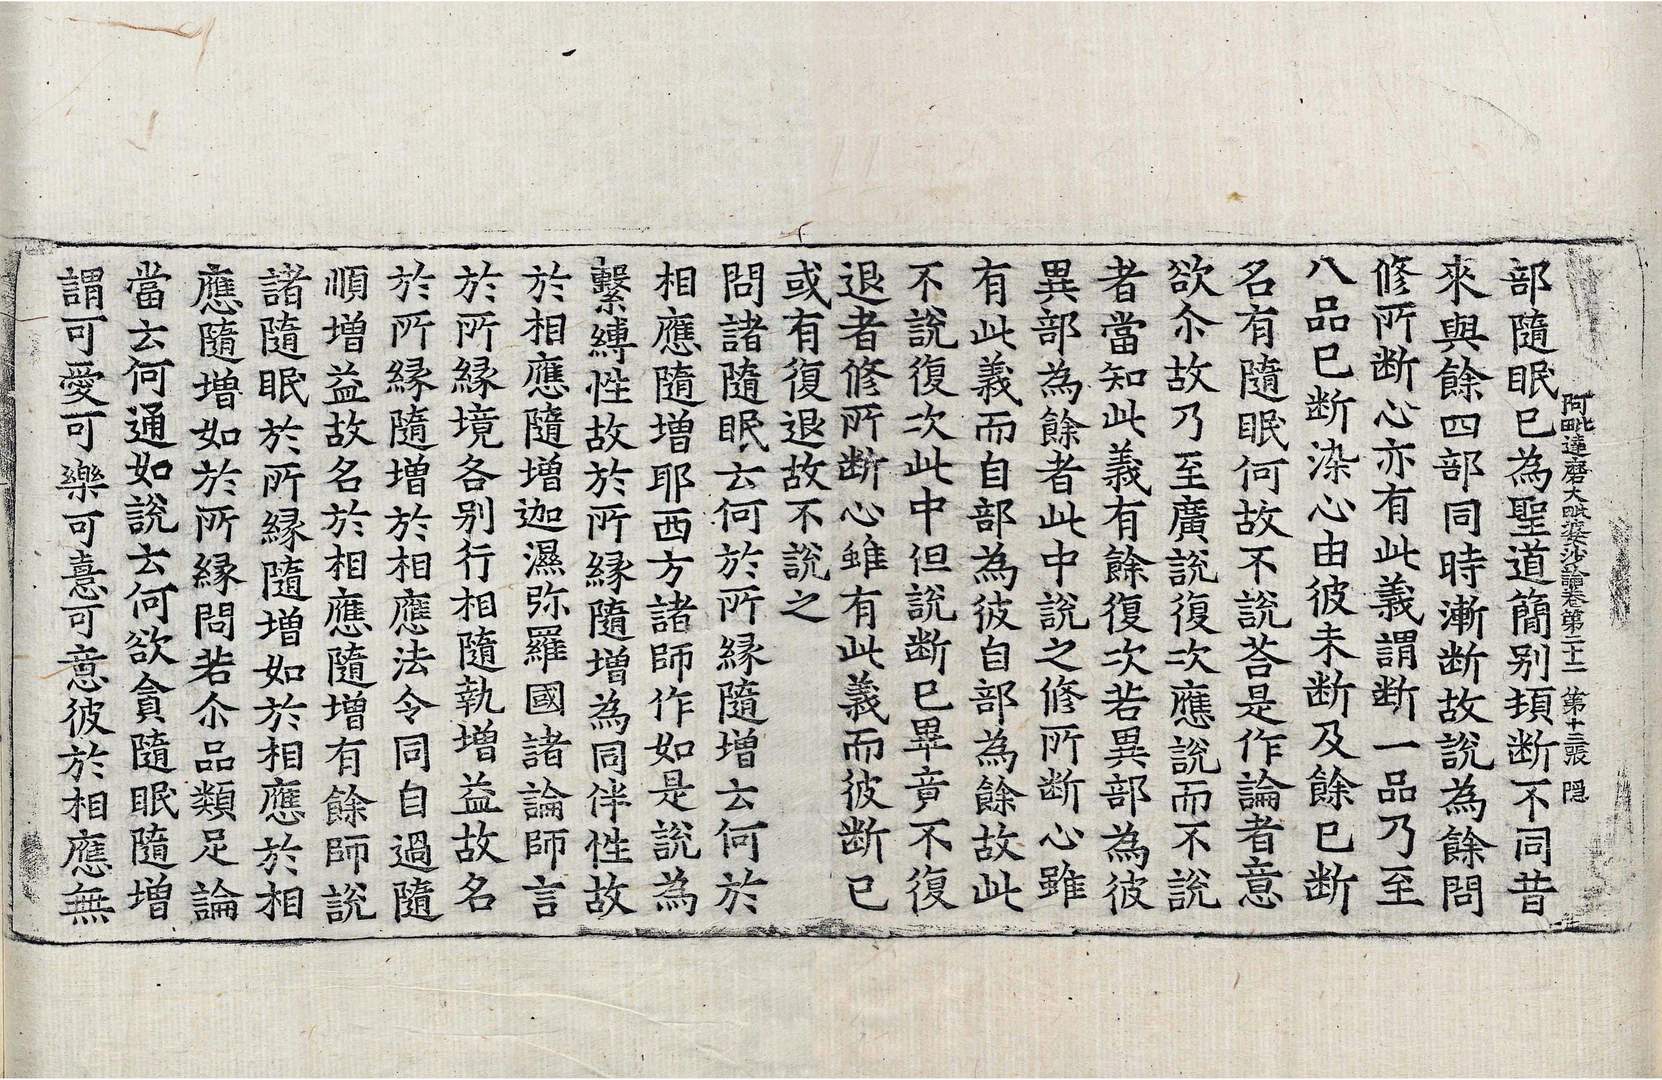 阿毗達磨大毗婆沙論卷第二十二　第十二張　隱
部隨眠已為聖道簡别頓断不同昔
來與餘四部同時漸断故說為餘問
修所断心亦有此義謂断一品乃至
八品已断染心由彼未断及餘已断
名有隨眠何故不說荅是作論者意
欲尒故乃至廣說復次應說而不說
者當知此義有餘復次若異部為彼
異部為餘者此中說之修所断心雖
有此義而自部為彼自部為餘故此
不說復次此中但說断已畢竟不復
退者修所断心雖有此義而彼断已
或有復退故不說之
問諸隨眠云何於所緣隨增云何於
相應隨增耶西方諸師作如是說為
繫縛性故於所緣隨增為同伴性故
於相應隨增迦濕弥羅國諸論師言
於所緣境各别行相隨執增益故名
於所緣隨增於相應法令同自過隨
順增益故名於相應隨增有餘師說
諸隨眠於所緣隨增如於相應於相
應隨增如於所緣問若尒品類足論
當云何通如說云何欲貪隨眠隨增
謂可愛可樂可憙可意彼於相應無